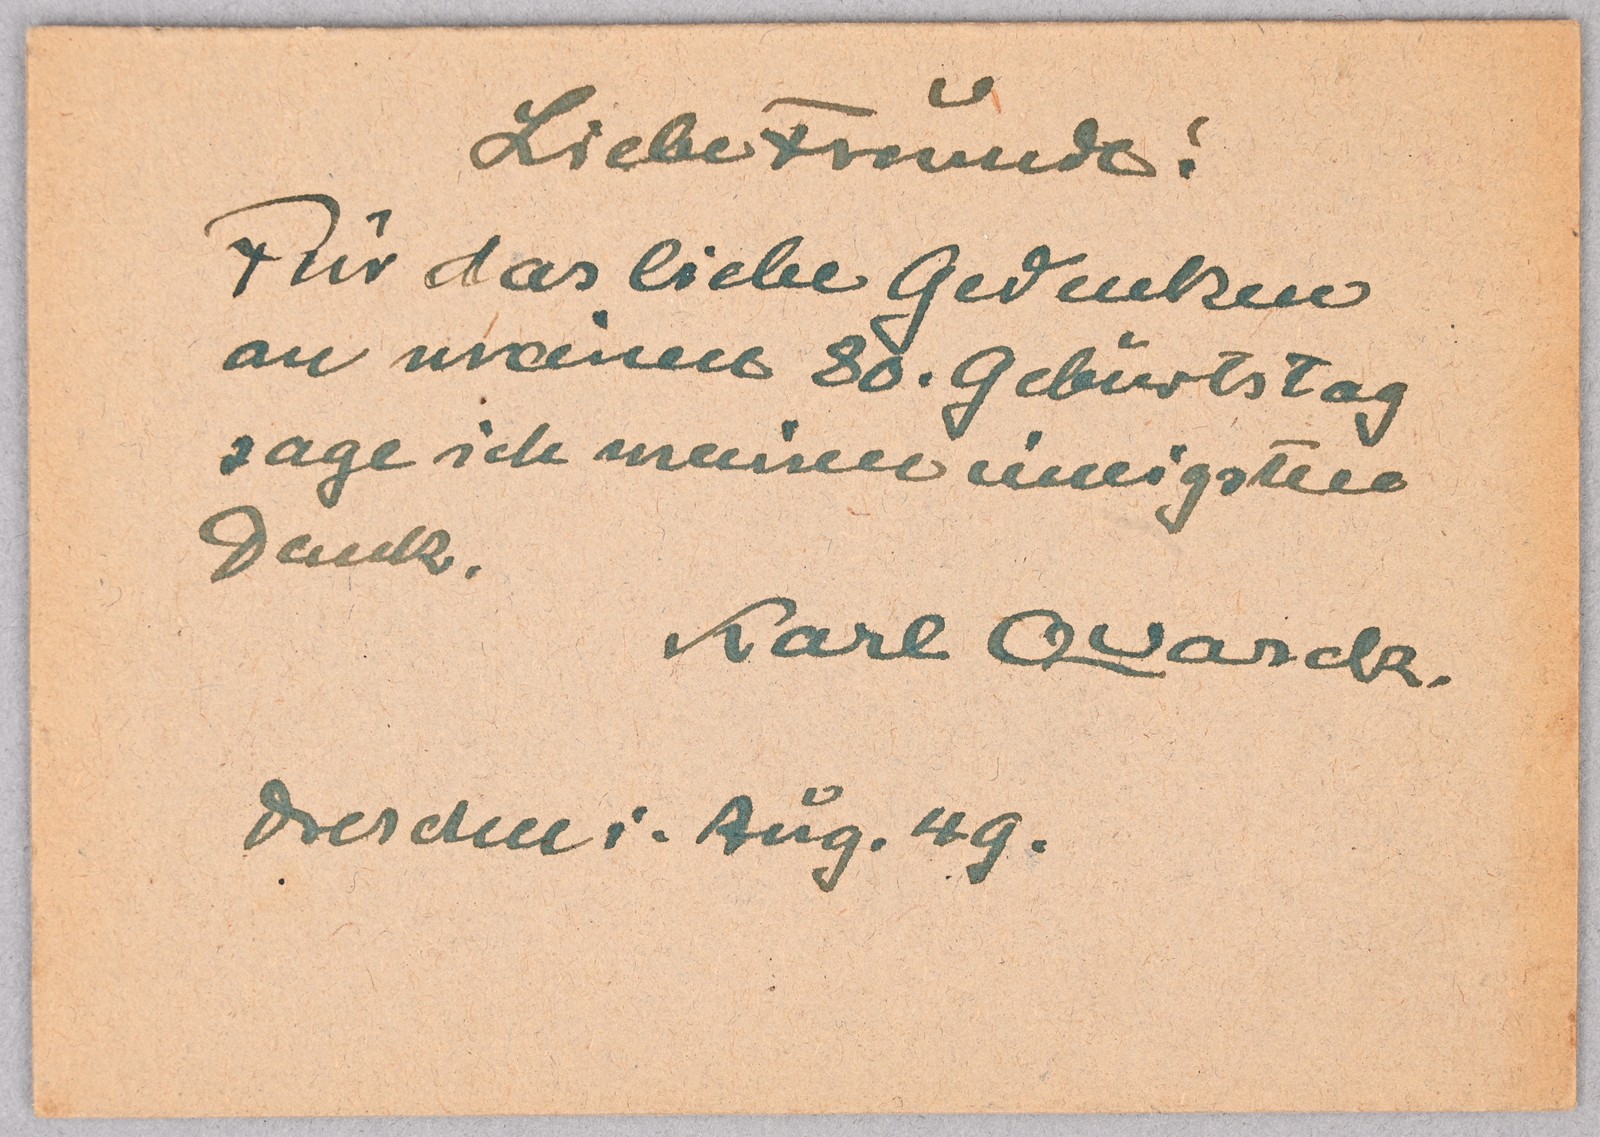 Liebe Freunde!
Für das liebe Gedenken
an meinen 80. Geburtstag
sage ich meinen innigsten
Dank.
Karl Quarck.
Dresden i. Aug. 49.